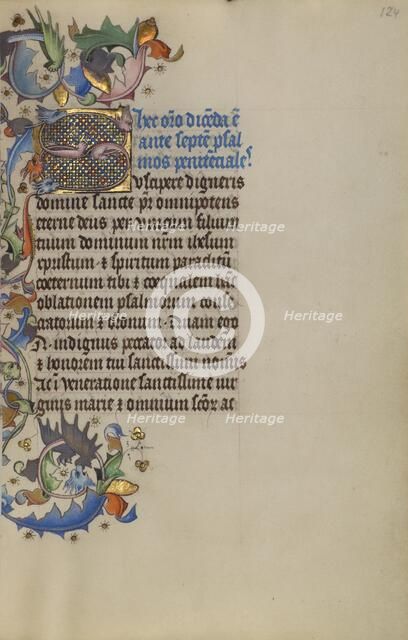 124
hec oro dicēda ē
ante septē psal
mos penitēciales
Suscipere digneris
domine sancte pr omnipotens
eterne deus per dnm nrm filium
tuum dominum nrm ihesum
cpistum · et spiritum paraclitū
coeternum tibi et coequalem
oblationem psalmorum conse
cratorum et bronum · Quam ego
N · indignus peccator ad laudem
et honorem tui sanctissimi nominis
Ac i veneratione sanctissime vir
ginis marie et omnium scōr ac
Heritage
Heritage
Heritage
Heritage
Heritage
Heritage